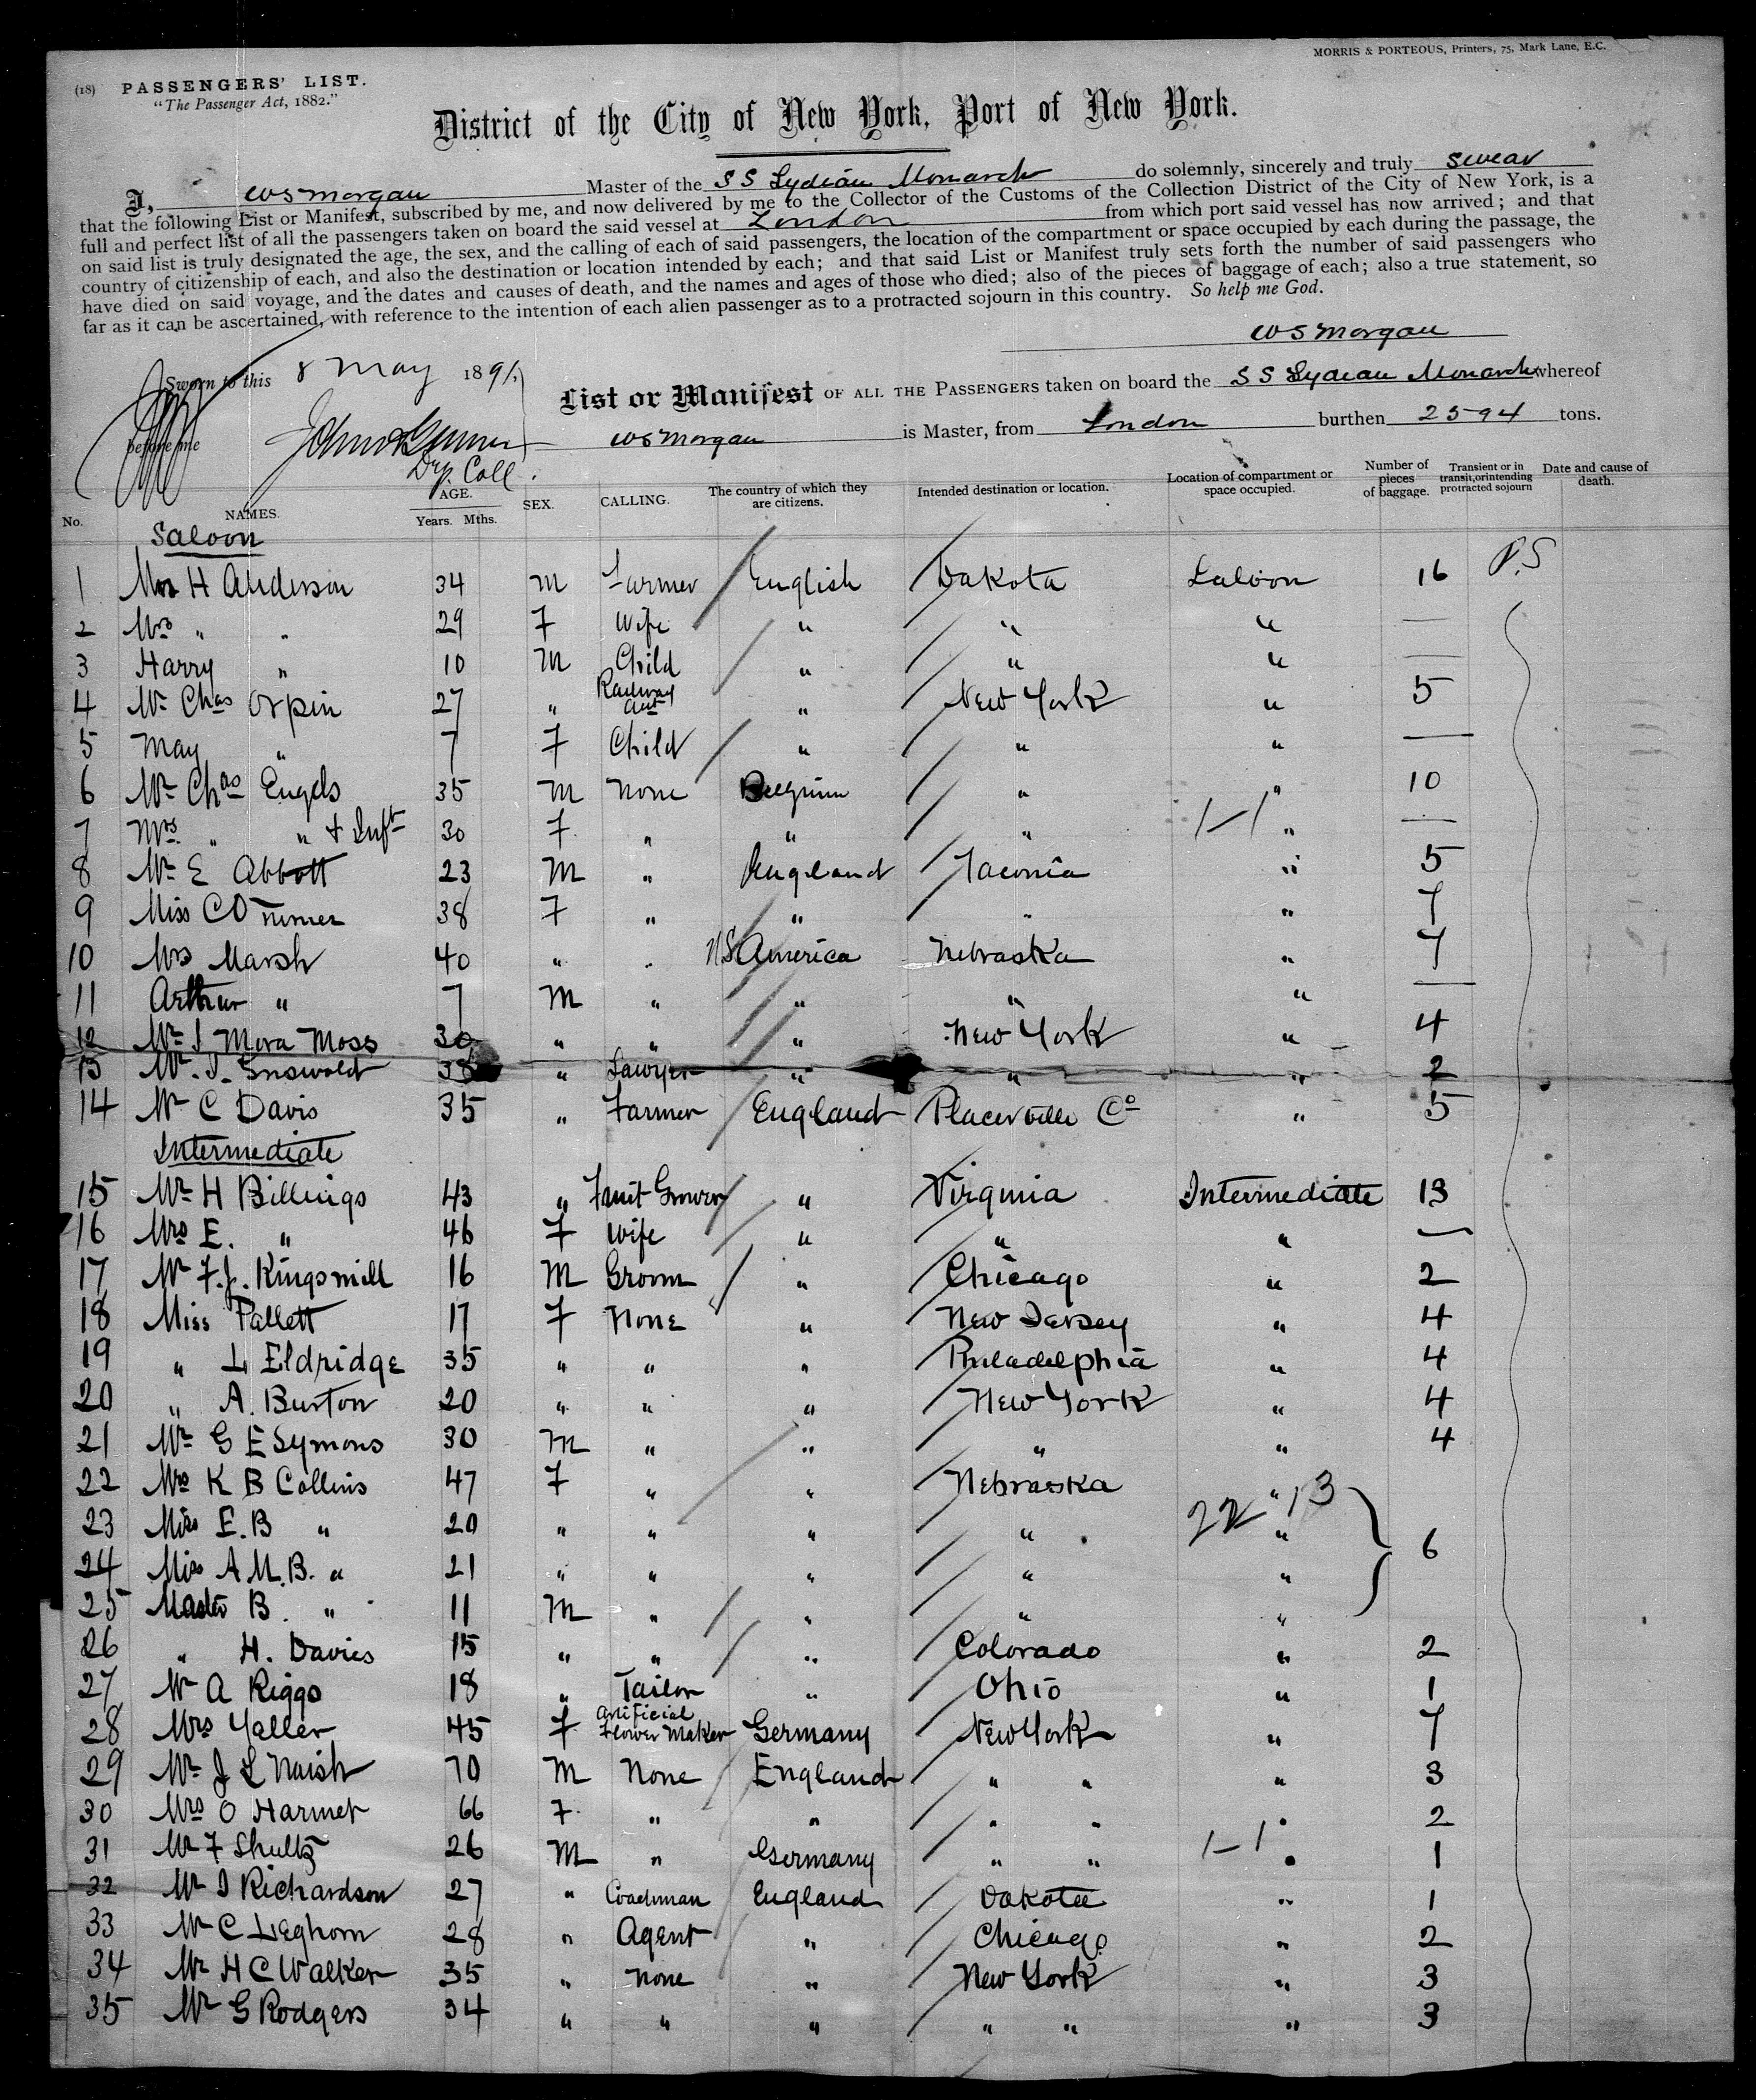 MORRIS & PORTEOUS, Printers, 75, Mark Lane, E.C.
(18) PASSENGERS' LIST.
"The Passenger Act, 1882."
District of the City of New York, Port of New York.
I, W S Morgan Master of the S S Lydian Monarch do solemnly, sincerely and truly swear
that the following List or Manifest, subscribed by me, and now delivered by me to the Collector of the Customs of the Collection District of the City of New York, is a
full and perfect list of all the passengers taken on board the said vessel at London from which port said vessel has now arrived; and that
on said list is truly designated the age, the sex, and the calling of each of said passengers, the location of the compartment or space occupied by each during the passage, the
country of citizenship of each, and also the destination or location intended by each; and that said List or Manifest truly sets forth the number of said passengers who
have died on said voyage, and the dates and causes of death, and the names and ages of those who died; also of the pieces of baggage of each; also a true statement, so
far as it can be ascertained, with reference to the intention of each alien passenger as to a protracted sojourn in this country. So help me God.
W S Morgan
Sworn to this 8 May 1891
List or Manifest OF ALL THE PASSENGERS taken on board the S S Lydian Monarch whereof
before me
Dep. Coll.
W S Morgan is Master, from London burthen 2594 tons.
No. NAMES. AGE. Years. Mths. SEX. CALLING. The country of which they are citizens. Intended destination or location. Location of compartment or space occupied. Number of pieces of baggage. Transient or in transit, or intending protracted sojourn Date and cause of death.
Saloon
1 Mr H Anderson 34 M Farmer English Dakota Saloon 16 P.S
2 Mrs " " 29 F Wife " " " —
3 Harry " 10 M Child " " " —
4 Mr Chas Orpin 27 " Railway " New York " 5
5 May " 7 F Child " " " —
6 Mr Chas Engels 35 M None Belgium " " 10
7 Mrs " " & Inft 30 F " " " 1-1 " —
8 Mr E Abbott 23 M " England Tacoma " 5
9 Miss C 38 F " " " " 7
10 Mrs Marsh 40 " " America Nebraska " 7
11 Arthur " 7 M " " " " —
12 Mr I Mora Moss 30 " " " New York " 4
13 Mr. J. Griswold 38 " Lawyer " " " 2
14 Mr C Davis 35 " Farmer England Placerville Co " 5
Intermediate
15 Mr H Billings 43 " Fruit Grower " Virginia Intermediate 13
16 Mrs E. " 46 F Wife " " " —
17 Mr F.J. Kingsmill 16 M Groom " Chicago " 2
18 Miss Pallett 17 F None " New Jersey " 4
19 " L Eldridge 35 " " " Philadelphia " 4
20 " A. Burton 20 " " " New York " 4
21 Mr G E Symons 30 M " " " " 4
22 Mrs K B Collins 47 F " " Nebraska "
23 Miss E. B " 20 " " " " "
24 Miss A M. B. " 21 " " " " " 6
25 Master B. " 11 M " " " "
26 " H. Davies 15 " " " Colorado " 2
27 Mr A Riggs 18 " Tailor " Ohio " 1
28 Mrs Yaller 45 F Artificial Flower Maker Germany New York " 7
29 Mr J L Naish 70 M None England " " " 3
30 Mrs O Harmer 66 F " " " " " 2
31 Mr F Shultz 26 M " Germany " " 1-1 " 1
32 Mr I Richardson 27 " Coachman England Dakota " 1
33 Mr C Leghorn 28 " Agent " Chicago " 2
34 Mr H C Walker 35 " None " New York " 3
35 Mr G Rodgers 34 " " " " " " 3